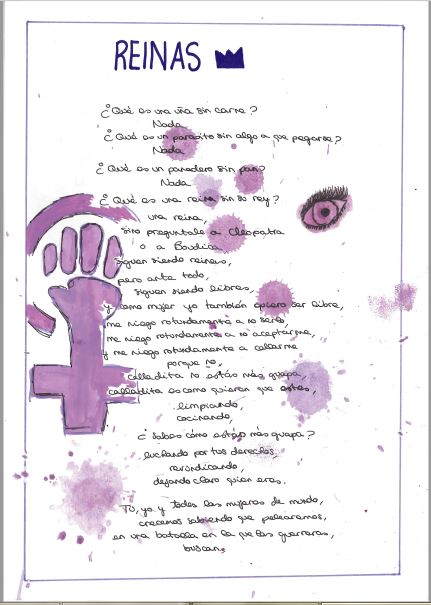 REINAS
¿Qué es una uña sin carne?
Nada
¿Qué es un parásito sin algo a que pegarse?
Nada
¿Qué es un panadero sin pan?
Nada
¿Qué es una reina sin su rey?
una reina,
sino pregúntale a Cleopatra
o a Boudica
siguen siendo reinas,
pero ante todo,
siguen siendo libres,
y como mujer yo también quiero ser libre,
me niego rotundamente a no serlo,
me niego rotundamente a no aceptarme,
y me niego rotundamente a callarme
porque no,
calladita no estás más guapa,
calladita es como quieren que estés,
limpiando,
cocinando,
¿Sabes cómo estás más guapa?
luchando por tus derechos,
reivindicando,
dejando claro quien eres.
Tú, yo y todas las mujeres de mundo,
crecemos sabiendo que pelearemos,
en una batalla en la que las guerreras,
buscan.